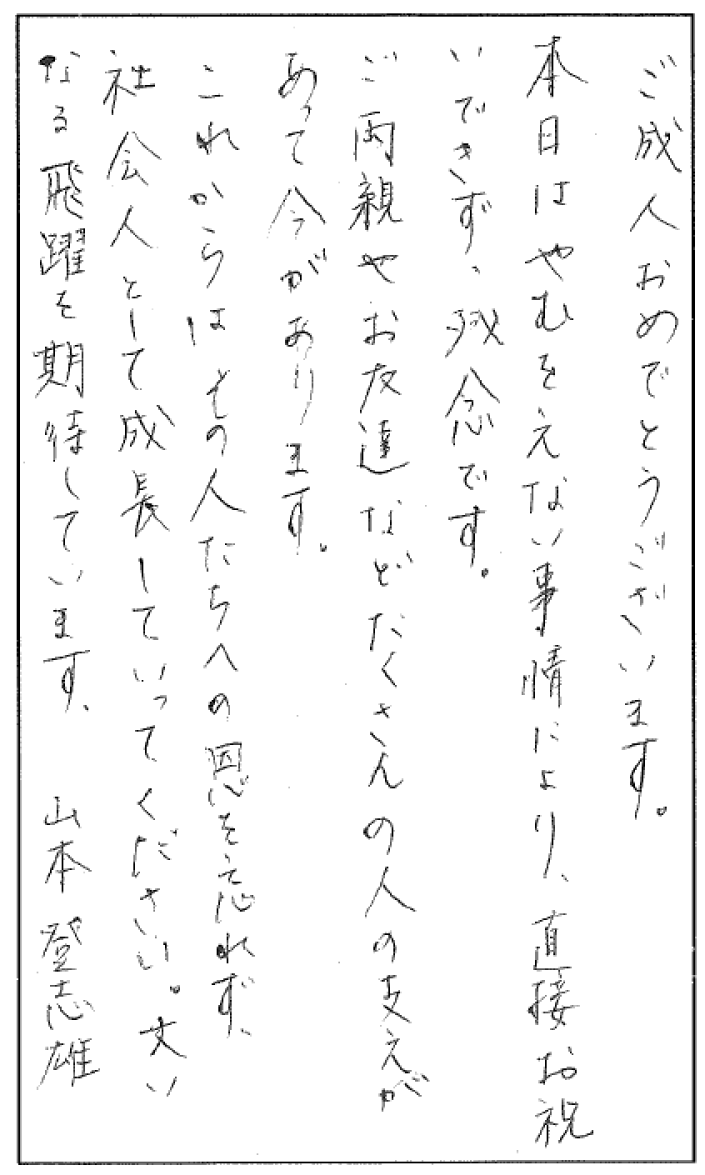 ご成人おめでとうございます。
本日はやむをえない事情により、直接お祝
いできず、残念です。
ご両親やお友達などたくさんの人の支えが
あって今があります。
これからはその人たちへの恩を忘れず、
社会人として成長していってください。大い
なる飛躍を期待しています、　山本登志雄